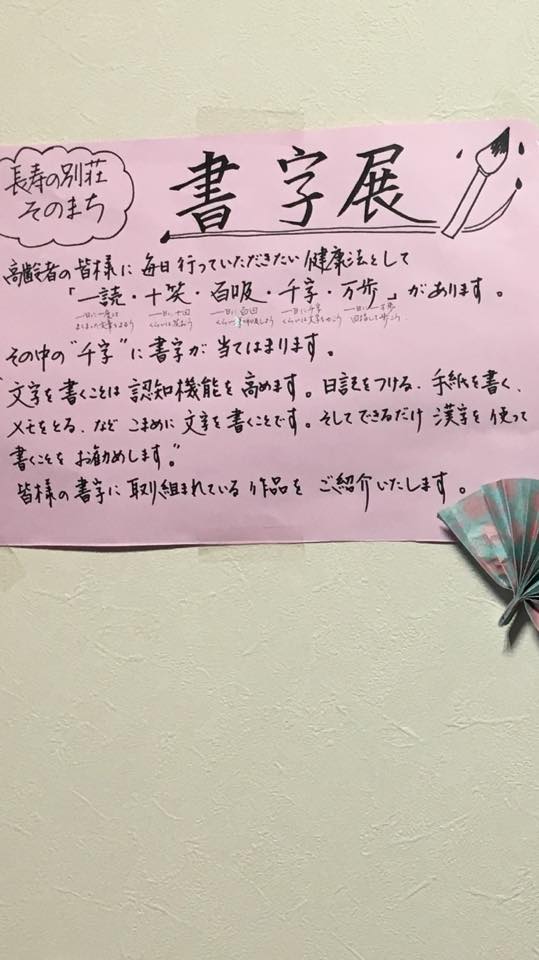 長寿の別荘
そのまち
書字展
高齢者の皆様に毎日行っていただきたい健康法として
「一読・十笑・百吸・千字・万歩」があります。
一日に一度は 一日に十回 一日に百回 一日に千字 一日に一万歩
まとまった文章をよもう くらいは笑おう くらい 呼吸しよう くらいは文字をかこう 目指して歩こう
その中の"千字"に書字が当てはまります。
"文字を書くことは認知機能を高めます。日記をつける、手紙を書く、
メモをとる、など こまめに文字を書くことです。そしてできるだけ漢字を使って
書くことをお勧めします。"
皆様の書字に取り組まれている作品をご紹介いたします。